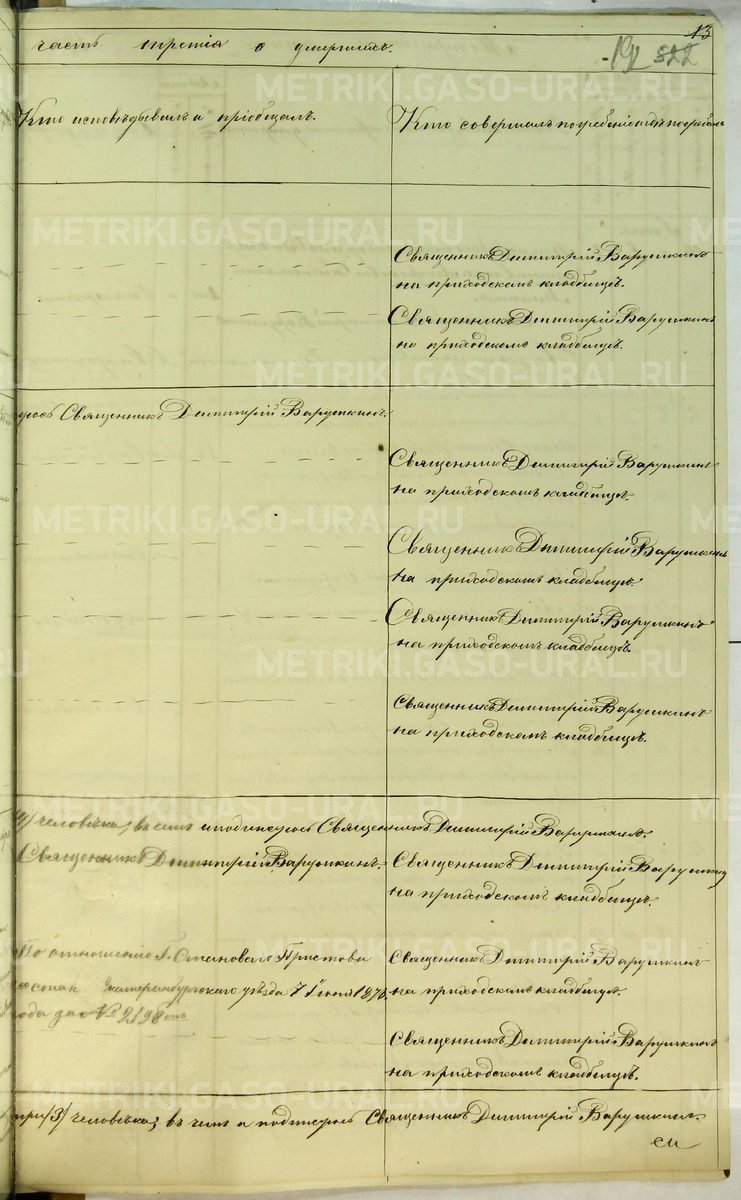 13
часть третія о умершихъ.
191 322
Кто исповѣдывалъ и пріобщалъ.
Кто совершалъ погребеніе и гдѣ погребены
Священникъ Димитрій Варушкинъ
на приходскомъ кладбищѣ.
Священникъ Димитрій Варушкинъ
на приходскомъ кладбищѣ.
Священникъ Димитрій Варушкинъ.
Священникъ Димитрій Варушкинъ
на приходскомъ кладбищѣ.
Священникъ Димитрій Варушкинъ
на приходскомъ кладбищѣ.
Священникъ Димитрій Варушкинъ
на приходскомъ кладбищѣ.
Священникъ Димитрій Варушкинъ
на приходскомъ кладбищѣ.
человѣка, въ чемъ и подписуюсь Священникъ Димитрій Варушкинъ.
Священникъ Димитрій Варушкинъ.
Священникъ Димитрій Варушкинъ
на приходскомъ кладбищѣ.
По отношенію Г. Становаго Пристава
Екатеринбургскаго уѣзда 7 Іюня 187
года за № 2198
Священникъ Димитрій Варушкинъ
на приходскомъ кладбищѣ.
Священникъ Димитрій Варушкинъ
на приходскомъ кладбищѣ.
три /3/ человѣка, въ чемъ и подписуюсь Священникъ Димитрій Варушкинъ.
METRIKI.GASO-URAL.RU